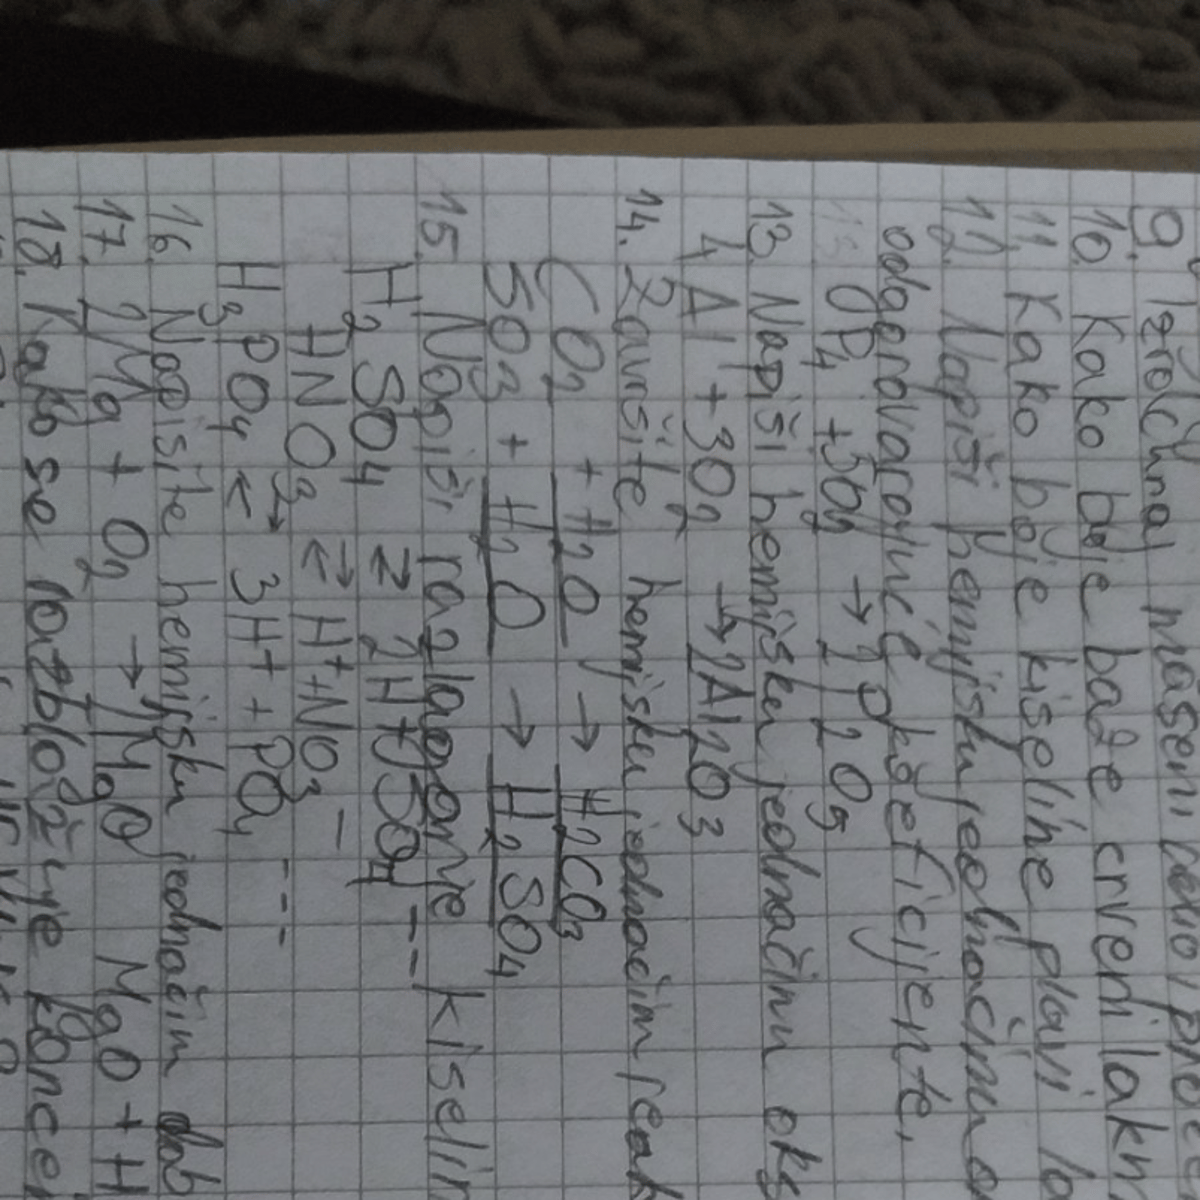 9. Izračunaj maseni
10. Kako boje baze crveni lakm
11. Kako boje kiseline plavi l
12. Napiši hemijsku jednačinu o
odgovarajuće koeficijente,
P4 + 5O2 → 2 P2O5
13. Napiši hemijsku jednačinu oks
4 Al + 3O2 → 2Al2O3
14. Završite hemijsku jednačin reak
CO2 + H2O → H2CO3
SO3 + H2O → H2SO4
15. Napiši razlaganje kiselin
H2SO4 ⇄ 2H+ SO4--
HNO3 ⇄ H+ + NO3-
H3PO4 ⇄ 3H+ + PO4---
16. Napišite hemijsku jednačin dob
17. 2Mg + O2 → MgO MgO + H
18. Kako se razblažuje koncen